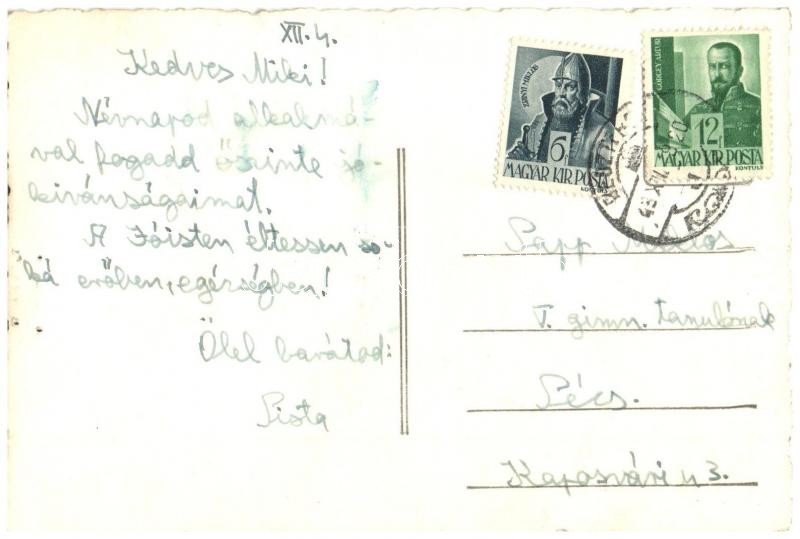 XII. 4.
Kedves Miki!
Névnapod alkalmá-
val fogadd őszinte jó-
kívánságaimat.
A Jóisten éltessen so-
ká erőben, egészségben!
Ölel barátod:
Pista
ZRINYI MIKLÓS
6f
MAGYAR KIR. POSTA
KONTULY
GÖRGEY ARTUR
12f
MAGYAR KIR. POSTA
KONTULY
Papp Miklós
V. gimn. tanulónak
Pécs.
Kaposvári u 3.